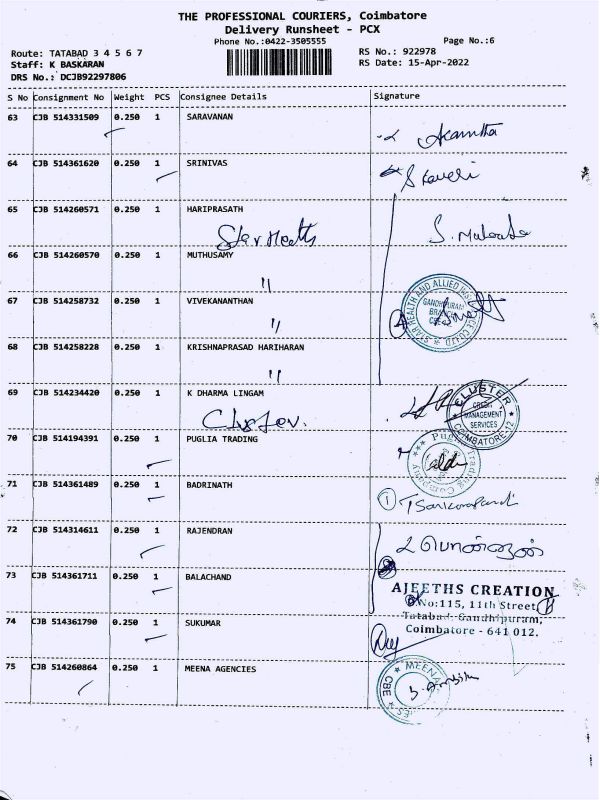 THE PROFESSIONAL COURIERS, Coimbatore
Delivery Runsheet - PCX
Phone No.:0422-3505555
Page No.:6
Route: TATABAD 3 4 5 6 7
RS No.: 922978
Staff: K BASKARAN
RS Date: 15-Apr-2022
DRS No.: DCJB92297806
S No Consignment No Weight PCS Consignee Details Signature
63 CJB 514331509 0.250 1 SARAVANAN
64 CJB 514361620 0.250 1 SRINIVAS
S Kaveri
65 CJB 514260571 0.250 1 HARIPRASATH
Star Health
66 CJB 514260570 0.250 1 MUTHUSAMY
"
67 CJB 514258732 0.250 1 VIVEKANANTHAN
"
STAR HEALTH AND ALLIED INSURANCE CO LTD
GANDHIPURAM
BRANCH
68 CJB 514258228 0.250 1 KRISHNAPRASAD HARIHARAN
"
69 CJB 514234420 0.250 1 K DHARMA LINGAM
Cluster
CLUSTER
CREDIT
MANAGEMENT
SERVICES
COIMBATORE-12
70 CJB 514194391 0.250 1 PUGLIA TRADING
Puglia Trading Company
71 CJB 514361489 0.250 1 BADRINATH
1
72 CJB 514314611 0.250 1 RAJENDRAN
73 CJB 514361711 0.250 1 BALACHAND
AJEETHS CREATION
D.No:115, 11th Street,
Tatabad, Gandhipuram,
Coimbatore - 641 012.
74 CJB 514361790 0.250 1 SUKUMAR
75 CJB 514260864 0.250 1 MEENA AGENCIES
MEENA
CBE